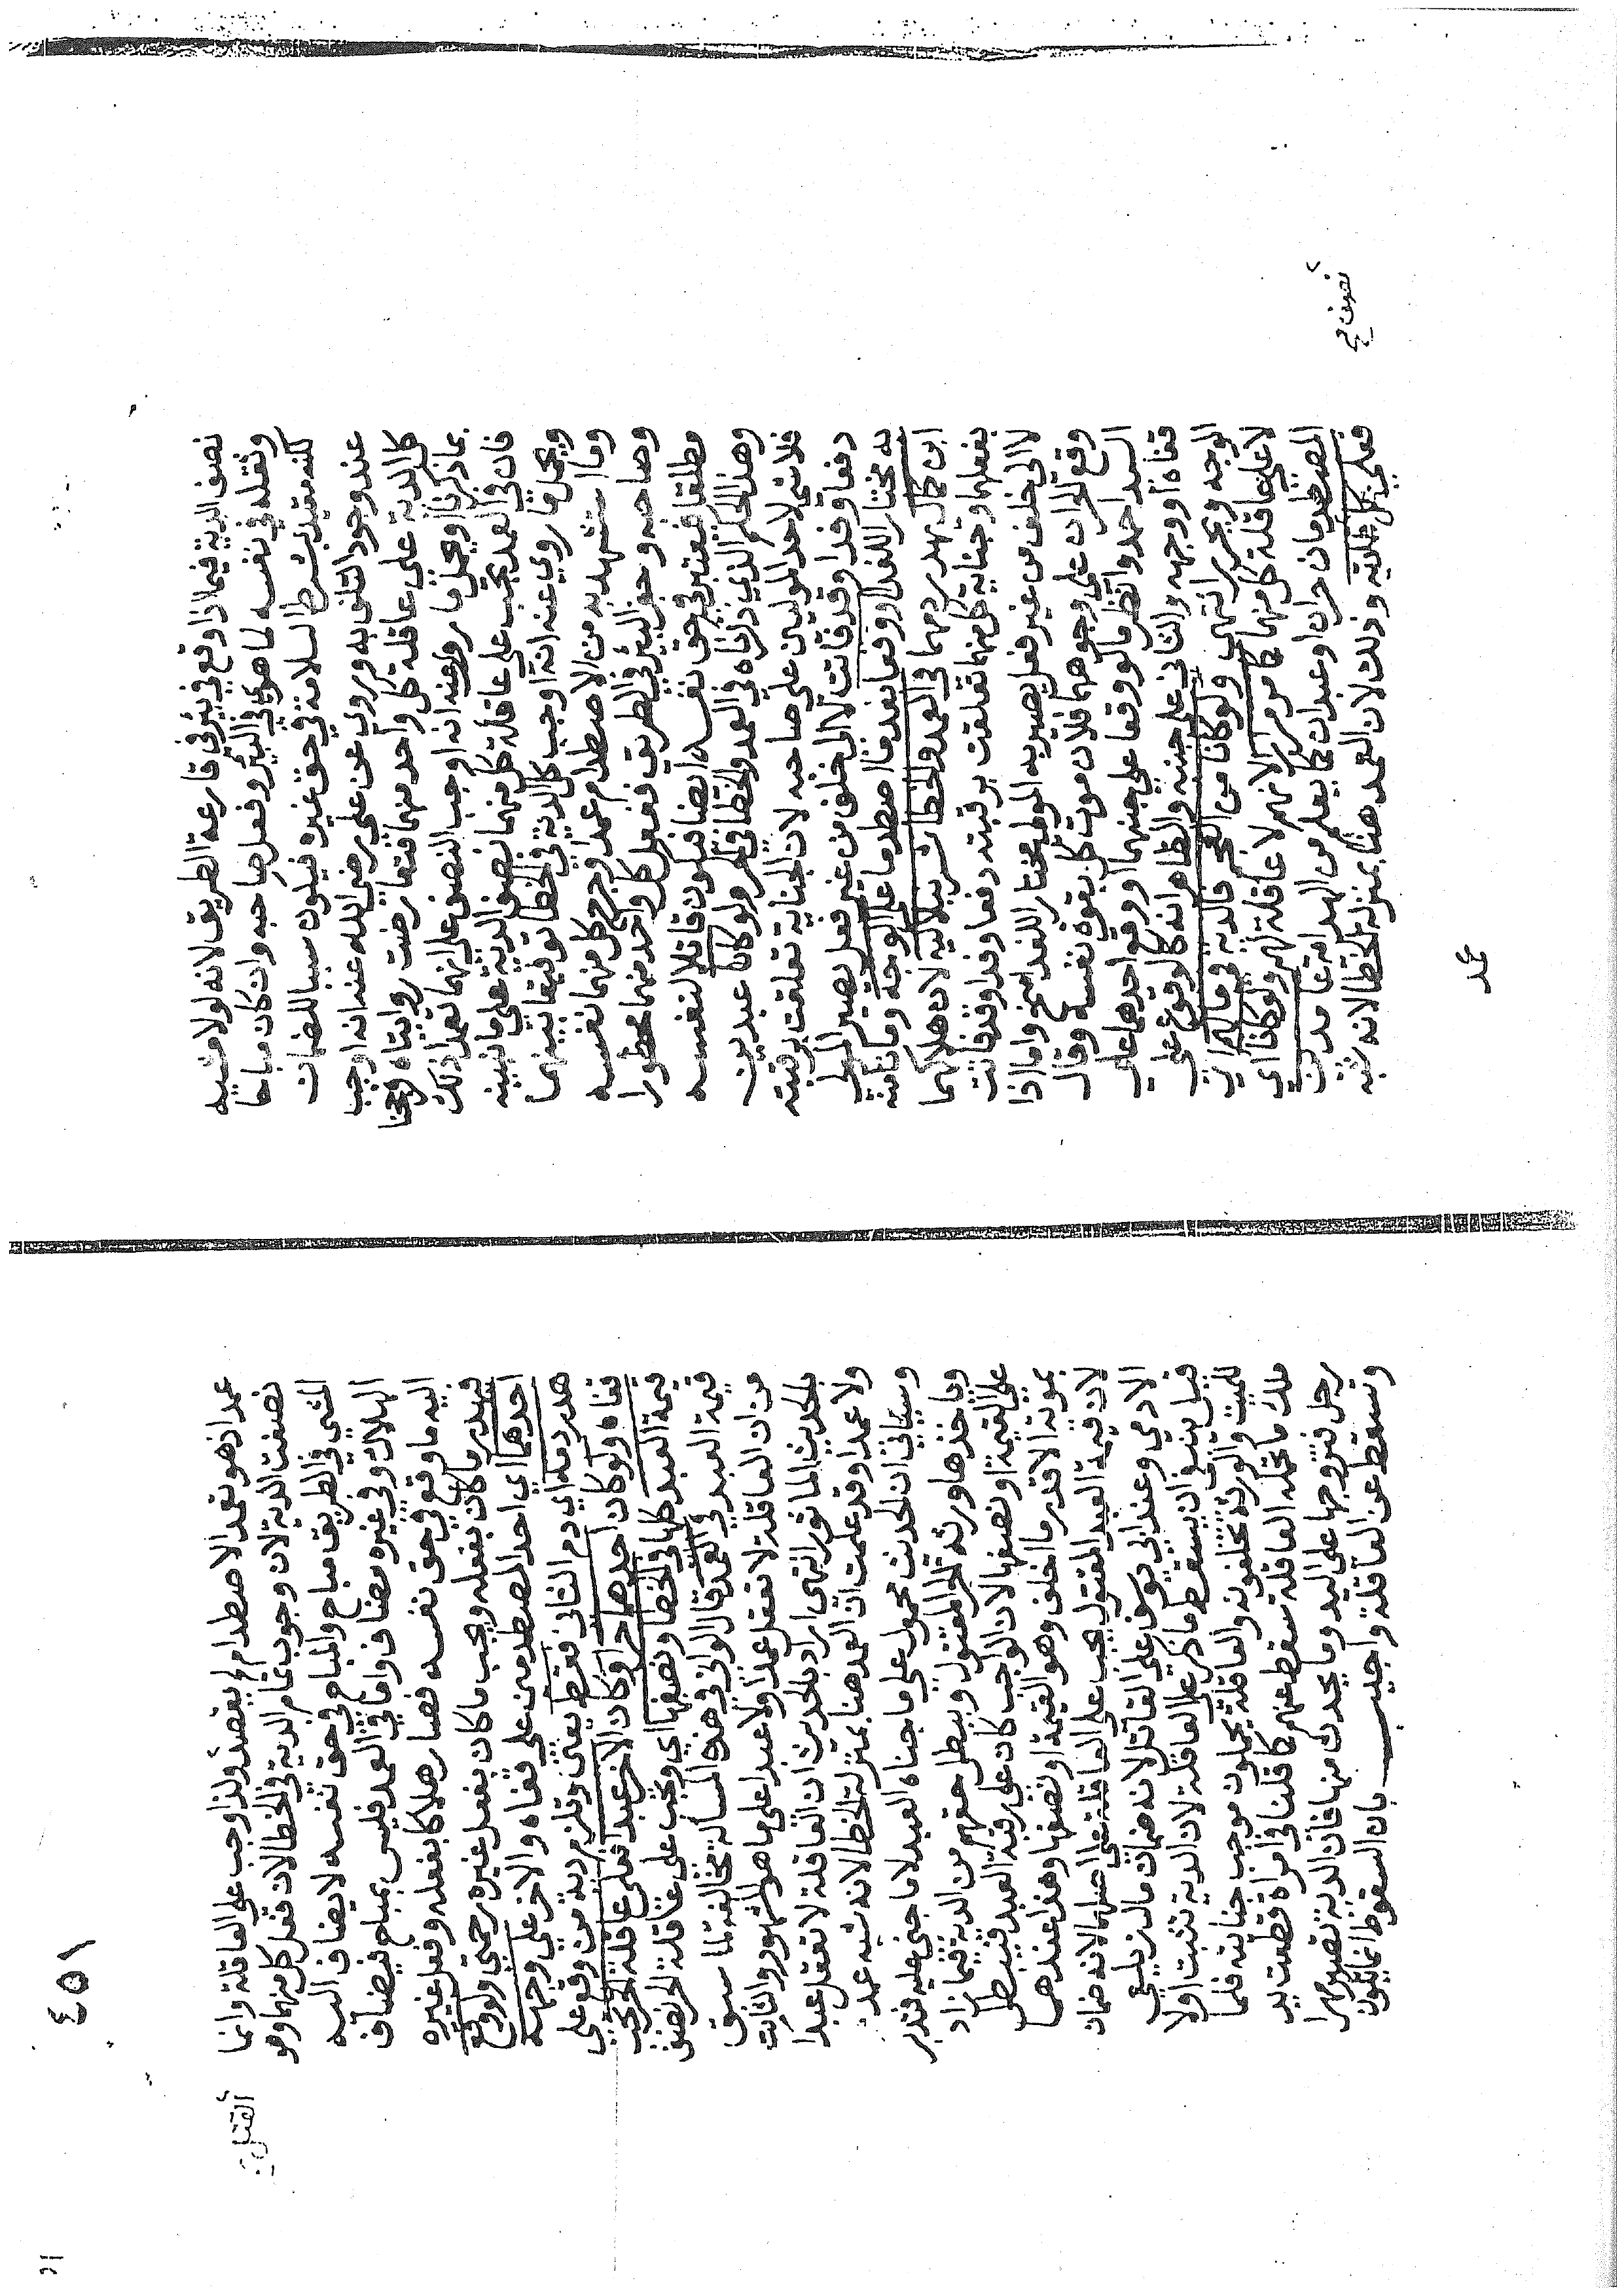 نصف الدية فيما اذا وقع في بئر في قارعة الطريق لانه لولا مشيه
وثقله في نفسه لما هوى في البئر وفعل صاحبه وان كان مباحا
لكنه مقيد بشرط السلامة في حق غيره فيكون سببا للضمان
عند وجود التلف به وروي عن علي رضي الله عنه انه اوجب
كل الدية على عاقلة كل واحد منهما فتعارضت روايتاه فرجحنا
بما ذكرنا او يحمل ما روي عنه انه اوجب النصف على انهما تعمدا ذلك
فان في العمد يجب على عاقلة كل منهما نصف الدية على ما نبينه
ويحمل ما روي عنه انه اوجب كل الدية في الخطا توفيقا بينهما
وما استشهد به من الاصطدام عمدا وجرح كل منهما نفسه
وصاحبه وحفر البئر في الطريق ففعل كل واحد منهما محظورا
مطلقا فيعتبر في حق نفسه ايضا فيكون قاتلا لنفسه
وهذا الحكم الذي ذكرناه في العمد والخطا في الحر ولو كانا عبدين
فلا شي لاحد الموليين على صاحبه لان الجناية تعلقت برقبته
دفعا وفدا وقد فاتت لا الى خلف من غير فعل يصير المولى
به مختارا للفدا او وقعا بعدما اصطدما على الوجه وماتا
ابن كمال يهدر دمهما في العمد والخطا شرنبلاليه لان هلاكهما
بفعلهما وجناية كل منهما تعلقت برقبته دفعا وفدا وقد فاتت
لا الى خلف من غير فعل يصير به المولى مختارا للفدا منح واما اذا
وقع الحران على وجوههما فلان موت كل بقوة نفسه وقال
السيد احمد وانظر ما لو وقعا على جنبهما او وقع احدهما على
قفاه او وجهه والثاني على جنبه والظاهر انه كالوقوع على
الوجه ويحرر انتهى ولو كانا من العجم فالدية في مالهم اي
لا على عاقلة كل منهما كما مر مرارا لانهم لا عاقلة لهم ولو كانا اي
المصطدمان حران او عبدان كما يعلم من الهداية عامدين
فعلى كل ديته وذلك لان العمد هنا بمنزلة الخطا لانه شبه
نصف صح
عمد
٤٥١
عمدا اذ هو تعمد الاصطدام ولم يقصد ولذا وجب على العاقلة وانما
نصفت الدية لان وجوب تمام الدية في الخطا لان فعل كل منهما وهو
المشي في الطريق مباح والمباح في حق نفسه لا يضاف اليه
الهلاك وفي غيره مضاف واما في العمد فليس بمباح فيضاف
اليه ما وقع في حق نفسه فصار هلاكا بفعله وفعل غيره
فيهدر ما كان بفعله ويجب ما كان بفعل غيره رحمتي ولو وقع
احدهما اي احد المصطدمين على قفاه والاخر على وجهه
هدر دمه اي دم الثاني فقط يعني وتلزم دية من وقع على
قفاه ولو كان احدهما حرا وكان الاخر عبدا فعلى عاقلة الحر تجب
قيمة العبد كلها في الخطا ونصفها اي وتجب على عاقلة الحر نصف
قيمة العبد في العمد قال الواني في هذه المسالة مخالفة لما سبق
من ان العاقلة لا تعقل عمدا ولا عبدا على ما هو المشهور والثابت
بالحديث الماثور انتهى اراد بالحديث ان العاقلة لا تعقل عبدا
ولا عمدا وقد علمت ان العمد هنا بمنزلة الخطا لانه شبه عمد
وسياتي ان الحديث محمول على ما جناه العبد لا ما جني عليه فتدبر
وياخذها ورثة الحر المقتول ويبطل حقهم من الدية فيما زاد
على القيمة او نصفها لان الواجب كان على رقبة العبد فيبطل
بموته الا قدر ما اخلف وهو القيمة او نصفها وهذا عندهما
لان قيمة العبد المقتول يجب على العاقلة على اصلهما لانه ضمان
الادمي وعند ابي يوسف على القاتل لانه ضمان مال زيلعي
قيل ينبغي ان يسقط ما ذكر على العاقلة لان الدية تثبت اولا
للميت والورثة يخلفونه والعاقلة يحملون موجب جنايته فلما
ملك ما تحمله العاقلة سقط عنهم كما قلنا في امراة قطعت يد
رجل فتزوجها على اليد وما يحدث منها فان الدية تصير مهرا
وتسقط عن العاقلة واجيب بان السقوط انما يكون
القتل